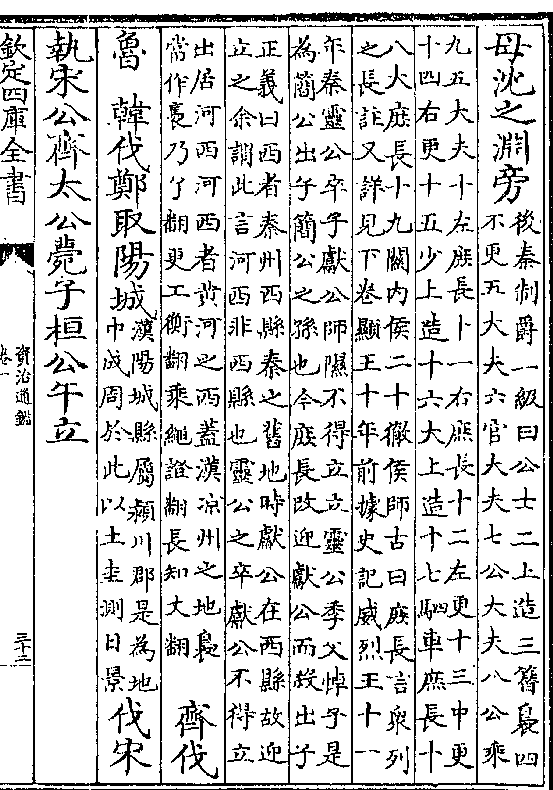 母沈之淵旁後秦制爵一級曰公士二上造三簪裊四
不更五大夫六官大夫七公大夫八公乘
九五大夫十左庶長十一右庶長十二左更十三中更
十四右更十五少上造十六大上造十七駟車庶長十
八大庶長十九關内侯二十徹侯師古曰庶長言衆列
之長註又詳見下卷顯王十年前據史記威烈王十一
年秦靈公卒子獻公師隰不得立立靈公季父悼子是
為簡公出子簡公之孫也今庶長改迎獻公而殺出子
正義曰西者秦州西縣秦之舊地時獻公在西縣故迎
立之余謂此言河西非西縣也靈公之卒獻公不得立
出居河西河西者黄河之西蓋漢凉州之地裊
當作褭乃了翻更工衡翻乘繩證翻長知丈翻 齊伐
魯 韓伐鄭取陽城漢陽城縣屬潁川郡是為地
中成周於此以土圭測日景 伐宋
執宋公齊太公薨子桓公午立
欽定四庫全書
資治通鑑
卷一
三十二